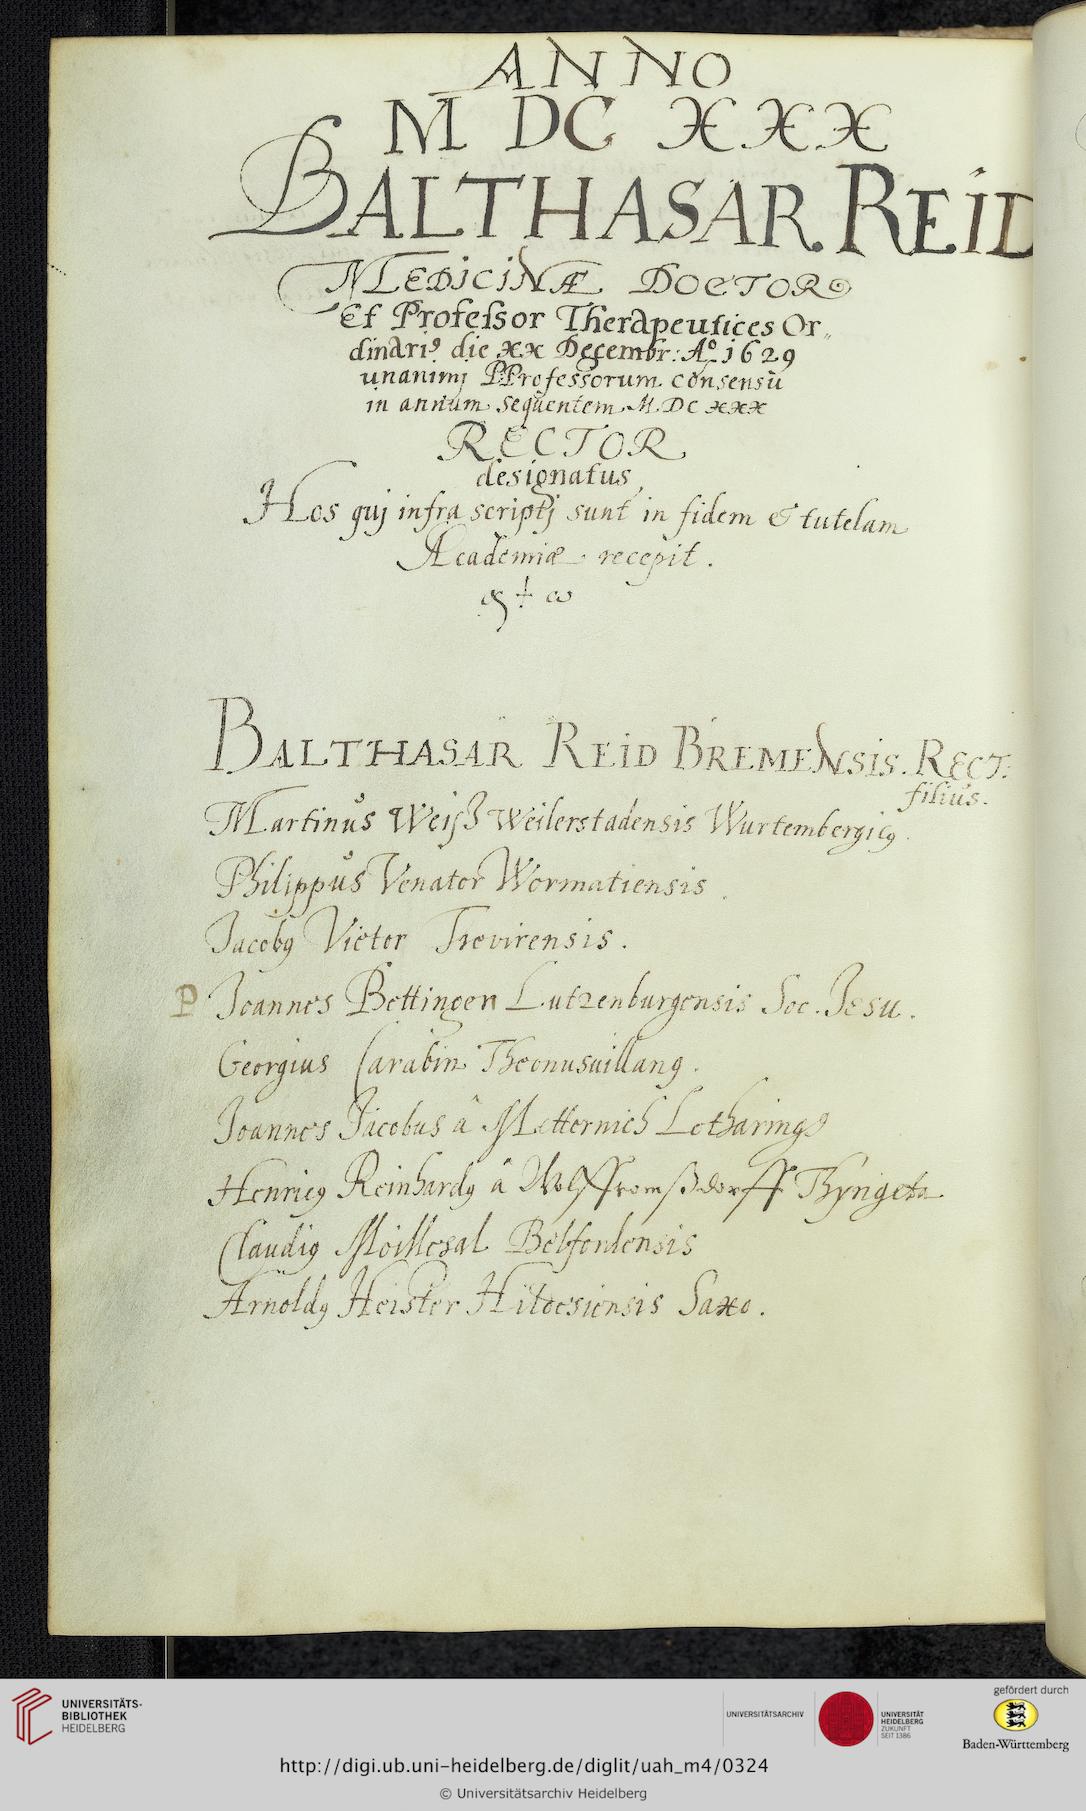 ANNO
M DC XXX
BALTHASAR REID
MEDICINÆ DOCTOR
Et Professor Therapeutices Or„
dinari9 die XX Decembr: Aº 1629
unanimj PProfessorum consensu
in annum sequentem M DC XXX
RECTOR
designatus
Hos quj infra scriptj sunt in fidem & tutelam
Academiæ recepit.
α + ω
BALTHASAR REID BREMENSIS. RECT:
filius.
Martinus Weiß Weilerstadensis Wurtembergic9.
Philippus Venator Wormatiensis.
Jacob9 Victor Trevirensis.
P Joannes Bettingen Lutzenburgensis Soc. Jesu.
Georgius Carabin Theonusvillan9.
Joannes Jacobus â Metternich Lotharing9
Henric9 Reinhard9 â Wolffromßdorff Thyngeta
Claudi9 Belfortensis
Arnold9 Heister Hildesiensis Saxo.
UNIVERSITÄTS-
BIBLIOTHEK
HEIDELBERG
UNIVERSITÄTSARCHIV
UNIVERSITÄT
HEIDELBERG
ZUKUNFT
SEIT 1386
gefördert durch
Baden-Württemberg
http://digi.ub.uni-heidelberg.de/diglit/uah_m4/0324
© Universitätsarchiv Heidelberg